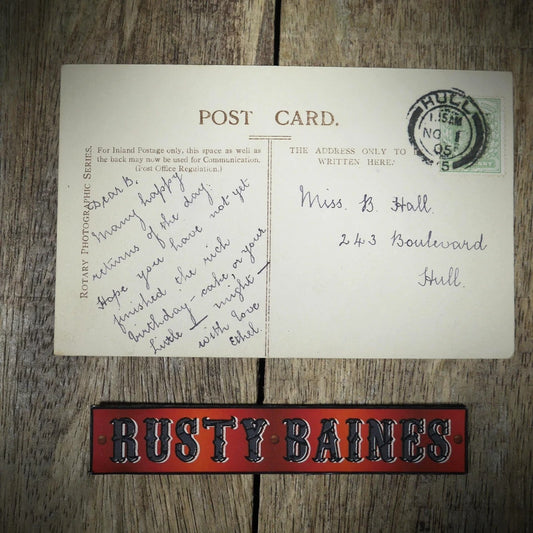 POST CARD.
For Inland Postage only, this space as well as
the back may now be used for Communication.
(Post Office Regulation.)
THE ADDRESS ONLY TO
WRITTEN HERE.
ROTARY PHOTOGRAPHIC SERIES.
HULL
1.15AM
NO 1
05
5
Dear B,
Many happy
returns of the day.
Hope you have not yet
finished the rich
birthday-cake, or your
Little I might
with love
Ethel.
Miss. B. Hall.
243 Boulevard
Hull.
RUSTY BAINES